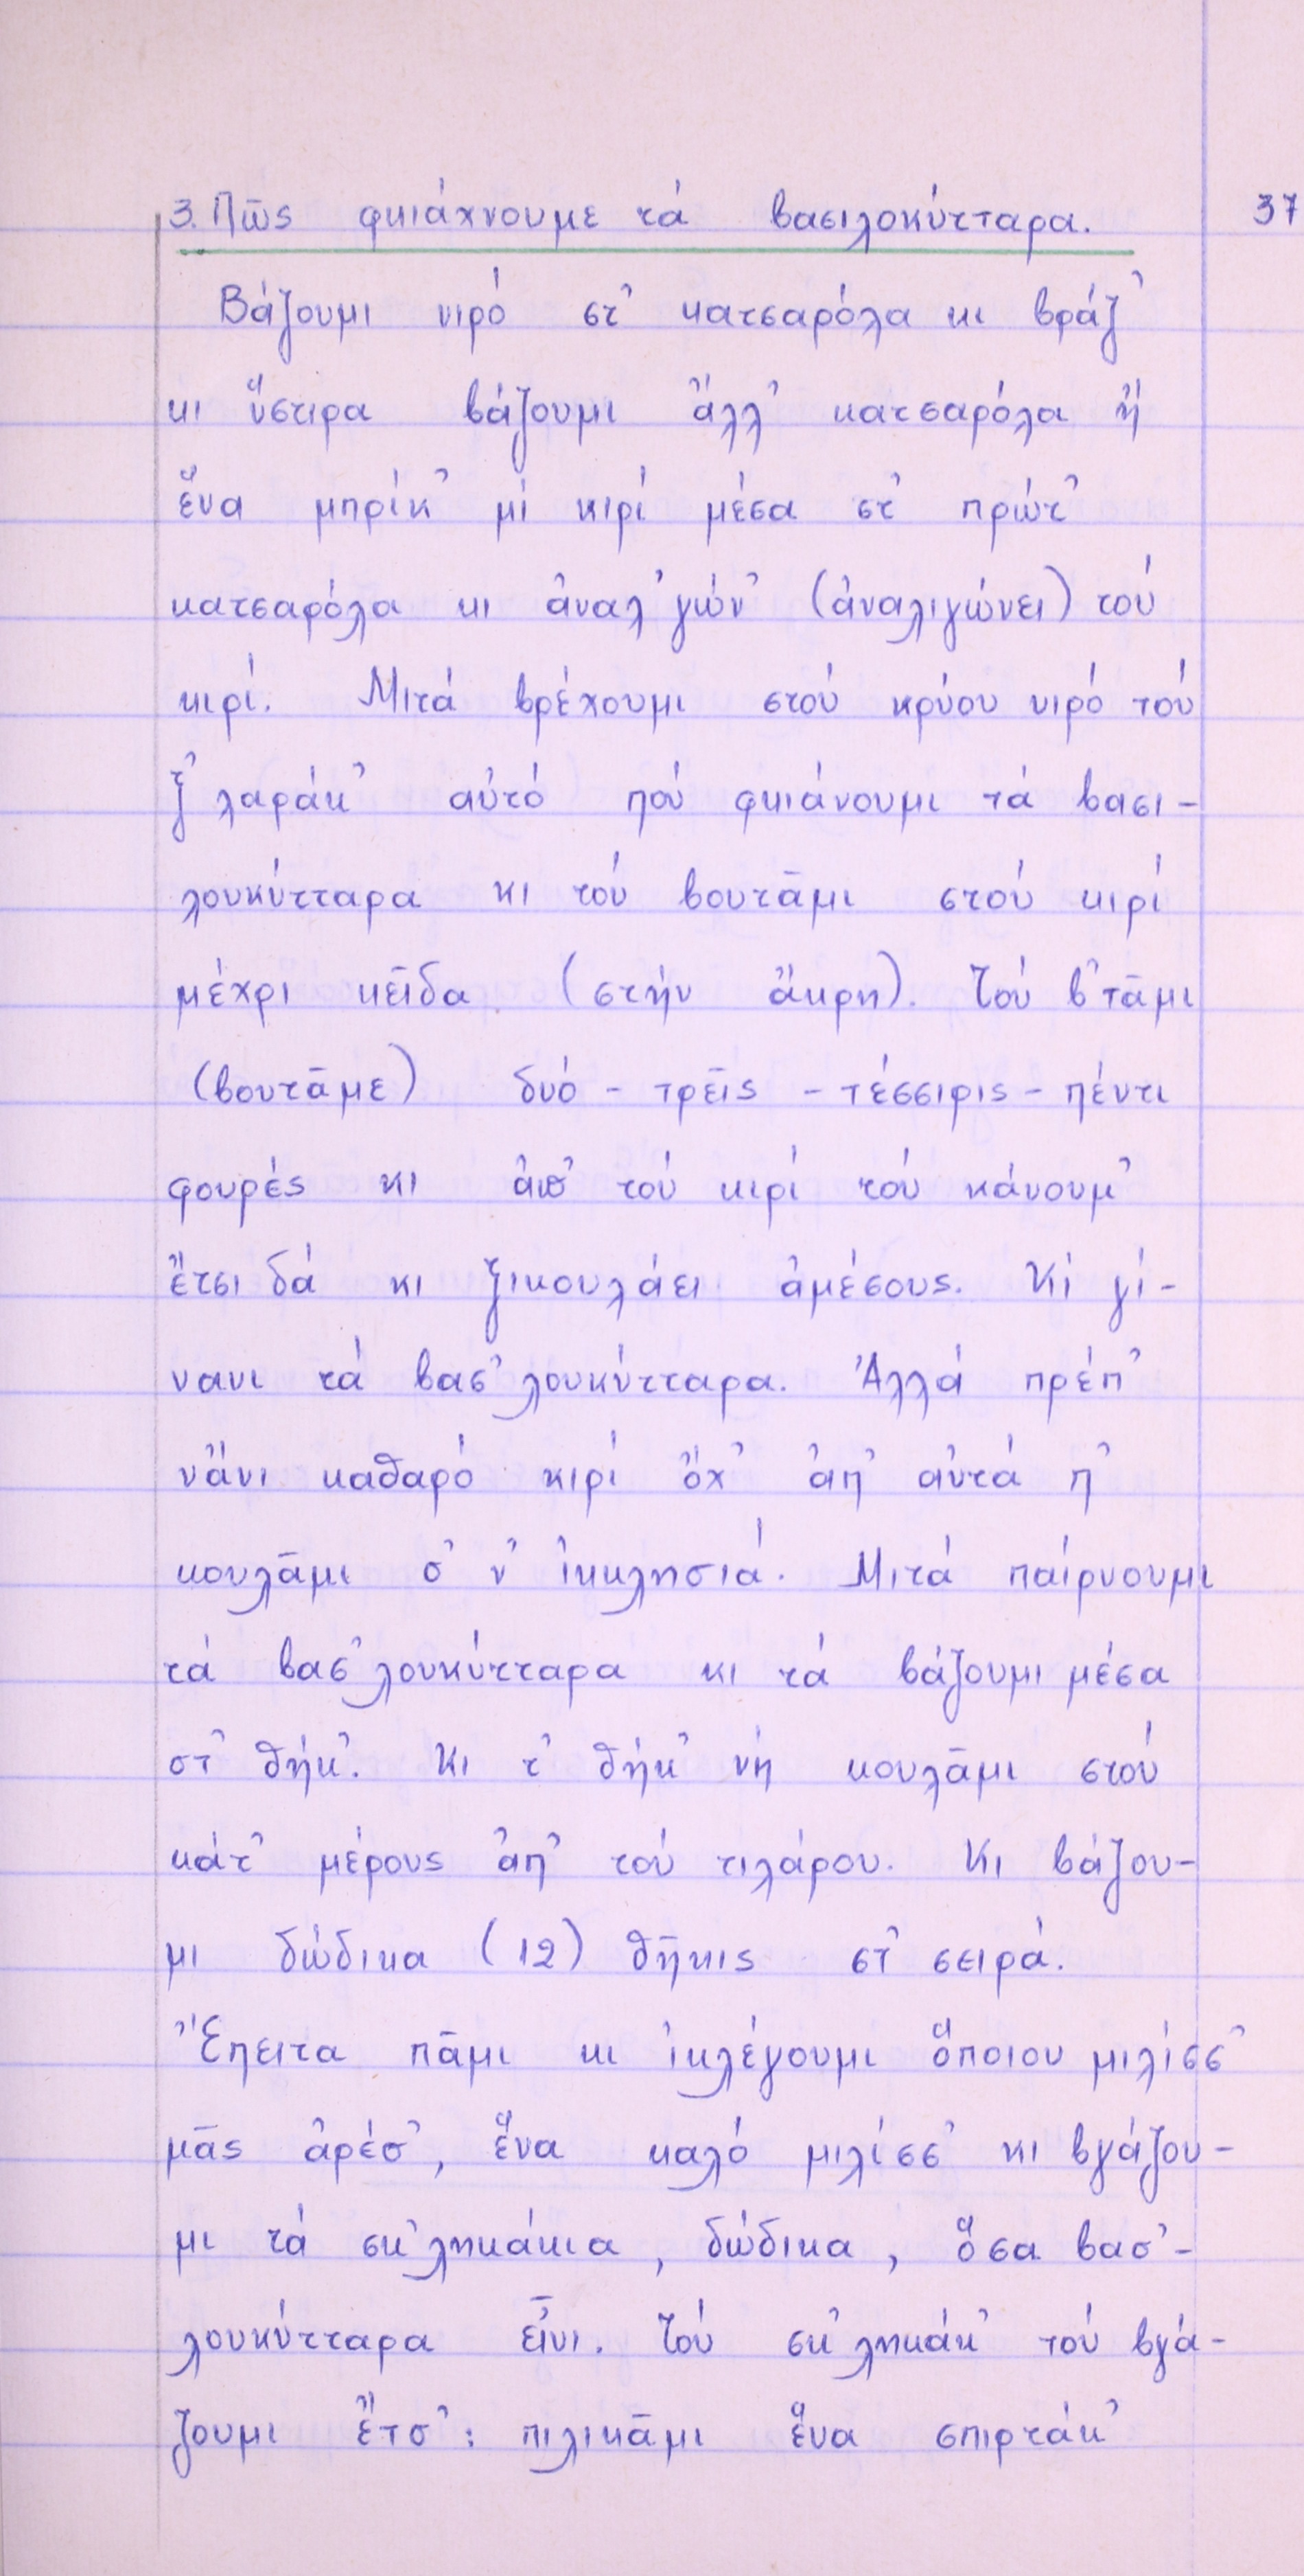 3. Πῶς φκιάχνουμε τά βασιλοκύτταρα. 37
Βάζουμι νιρό στ᾿ κατσαρόλα κι βράζ᾿
κι ὕστιρα βάζουμι ἄλλ᾿ κατσαρόλα ἤ
ἕνα μπρίκ᾿ μί κιρί μέσα στ᾿ πρώτ᾿
κατσαρόλα κι ἀναλ᾿γών᾿ (ἀναλιγώνει) τού
κιρί. Μιτά βρέχουμι στού κρύου νιρό τού
ξ᾿λαράκ᾿ αὐτό πού φκιάνουμι τά βασι-
λουκύτταρα κι τού βουτᾶμι στού κιρί
μέχρι κεῖδα (στήν ἄκρη). Τού β᾿τᾶμι
(βουτᾶμε) δυό - τρεῖς - τέσσιρις - πέντι
φουρές κι ἀπ᾿ τού κιρί τού κάνουμ᾿
ἔτσι δά κι ξικουλάει ἀμέσους. Κί γί-
νανι τά βασ᾿λουκύτταρα. Ἀλλά πρέπ᾿
νἄνι καθαρό κιρί ὄχ᾿ ἀπ᾿ αὐτά π᾿
κουλᾶμι σ᾿ ν᾿ ἰκκλησιά. Μιτά παίρνουμι
τά βασ᾿λουκύτταρα κι τά βάζουμι μέσα
στ᾿ θήκ᾿. Κι τ᾿ θήκ᾿ νή κουλᾶμι στού
κάτ᾿ μέρους ἀπ᾿ τού τιλάρου. Κι βάζου-
μι δώδικα (12) θῆκις στ᾿ σειρά.
Ἔπειτα πᾶμι κι ἰκλέγουμι ὅποιου μιλίσσ᾿
μᾶς ἀρέσ᾿, ἕνα καλό μιλίσσ᾿ κι βγάζου-
μι τά σκ᾿ληκάκια, δώδικα, ὅσα βασ᾿-
λουκύτταρα εἶνι. Τού σκ᾿ληκάκ᾿ τού βγά-
ζουμι ἔτσ᾿: πιλικᾶμι ἕνα σπιρτάκ᾿